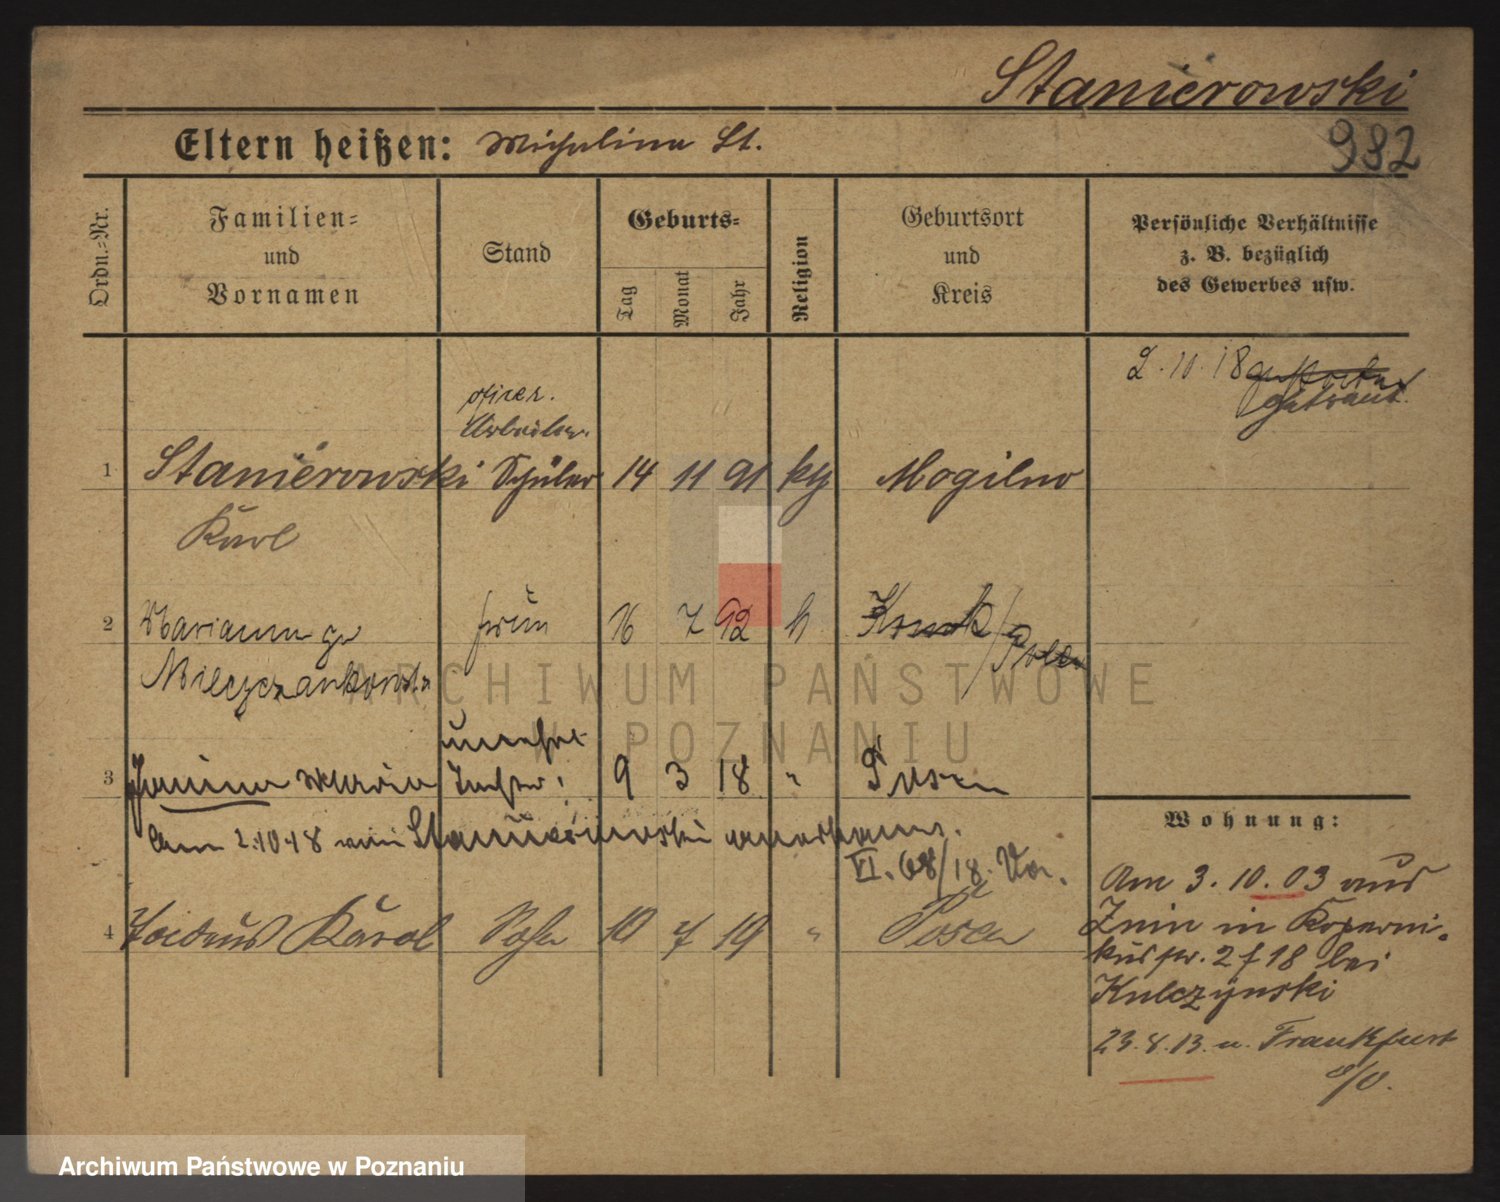 Stanierowski
982
Eltern heißen: Michalina St.
Ordn.=Nr.
Familien=
und
Vornamen
Stand
Geburts=
Tag
Monat
Jahr
Religion
Geburtsort
und
Kreis
Persönliche Verhältnisse
z. B. bezüglich
des Gewerbes usw.
2.10.18
getraut.
Arbeiter
1 Stanierowski Schüler 14 11 91 kth Mogilno
Karl
2 Marianna 16 7 92 k Posen
unehel
3 Janina Maria Tochter 9 3 18 " Posen
Am 2.10.18 von Stanierowski anerkannt.
VI. 68/18.
4 Karol Sohn 10 7 19 " Posen
Wohnung:
Am 3.10.03 aus
Znin in Koperni-
kusstr. 2 f 18 bei
Kulczynski
23.8.13. n. Frankfurt
a/O.
ARCHIWUM PAŃSTWOWE
W POZNANIU
Archiwum Państwowe w Poznaniu